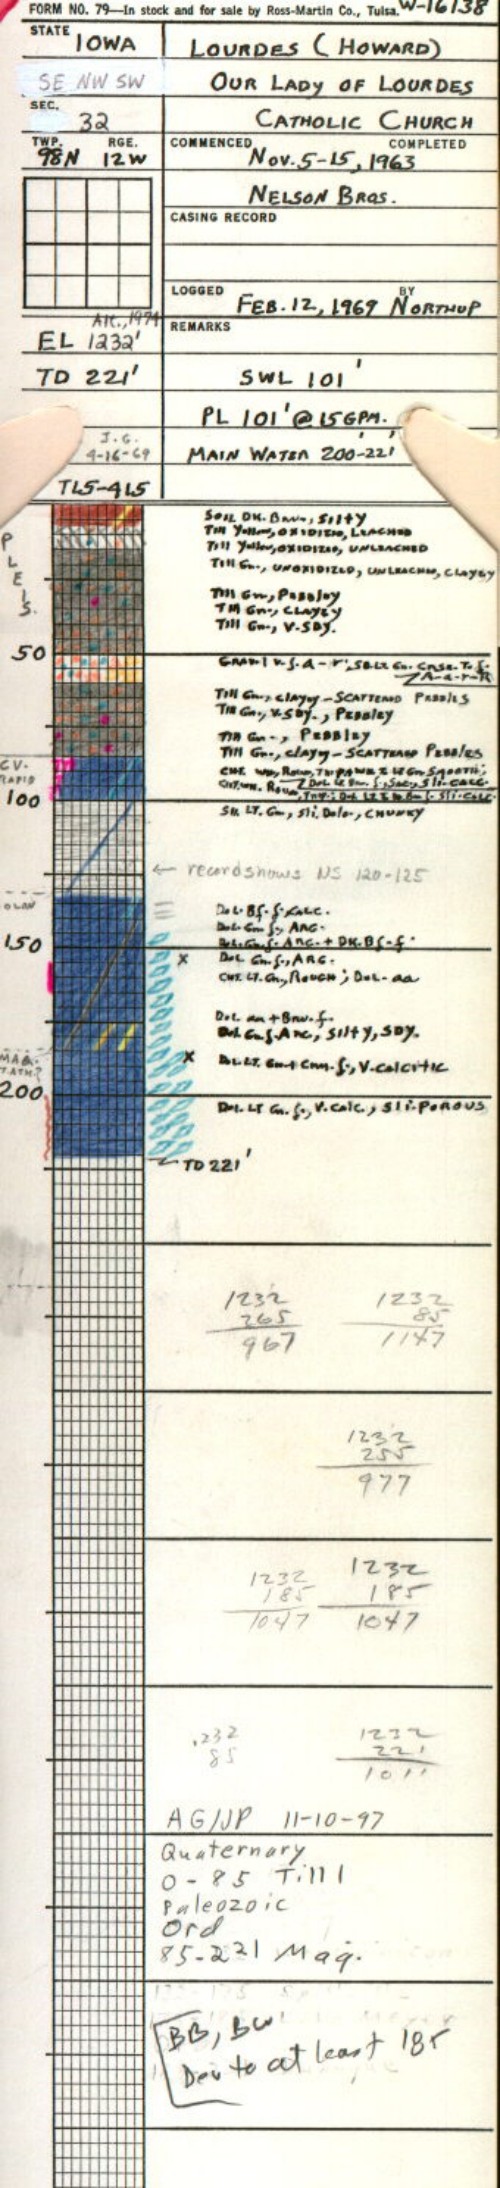 FORM NO. 79—In stock and for sale by Ross-Martin Co., Tulsa. W-16138
STATE IOWA
LOURDES (HOWARD)
SE NW SW
OUR LADY OF LOURDES
SEC. 32
CATHOLIC CHURCH
TWP. 98N RGE. 12W
COMMENCED COMPLETED
NOV. 5-15, 1963
NELSON BROS.
CASING RECORD
LOGGED BY
FEB. 12, 1969 NORTHUP
Alt., 1974
EL 1232'
REMARKS
TD 221'
SWL 101'
PL 101' @ 15 GPM.
J.G.
4-16-69
MAIN WATER 200-221'
TL5-415
PLEIS.
SOIL DK. BRN., SILTY
TILL YELLOW, OXIDIZED, LEACHED
TILL YELLOW, OXIDIZED, UNLEACHED
TILL GN., UNOXIDIZED, UNLEACHED, CLAYEY
TILL GN., PEBBLEY
TILL GN., CLAYEY
TILL GN., V. SDY.
50
TILL GN., CLAYEY - SCATTERED PEBBLES
TILL GN., V. SDY., PEBBLEY
TILL GN., PEBBLEY
TILL GN., CLAYEY - SCATTERED PEBBLES
CV-
RAPID
100
SH. LT. GN., SLI. DOLO., CHUNKY
← record shows NS 120-125
DOL. GN. f., ARG.
150
DOL. GN. f., ARG. + DK. BF. f.
x DOL GN. f., ARG.
CHT. LT. GN., ROUGH; DOL. aa
DOL aa + BRN. f.
DOL GN. f. ARG, SILTY, SDY.
MAQ.
x DOL LT. GN + CRM. f., V. CALCITIC
200
DOL. LT GN. f., V. CALC., SLI. POROUS
TD 221'
1232 1232
265 85
967 1147
1232
255
977
1232 1232
185 185
1047 1047
.232 1232
85 221
1011
AG/JP 11-10-97
Quaternary
0-85 Till
Paleozoic
Ord
85-221 Maq.
BB, BW
Dev to at least 185